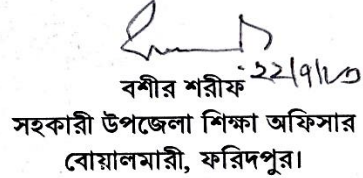 22/9/20
বশীর শরীফ
সহকারী উপজেলা শিক্ষা অফিসার
বোয়ালমারী, ফরিদপুর।